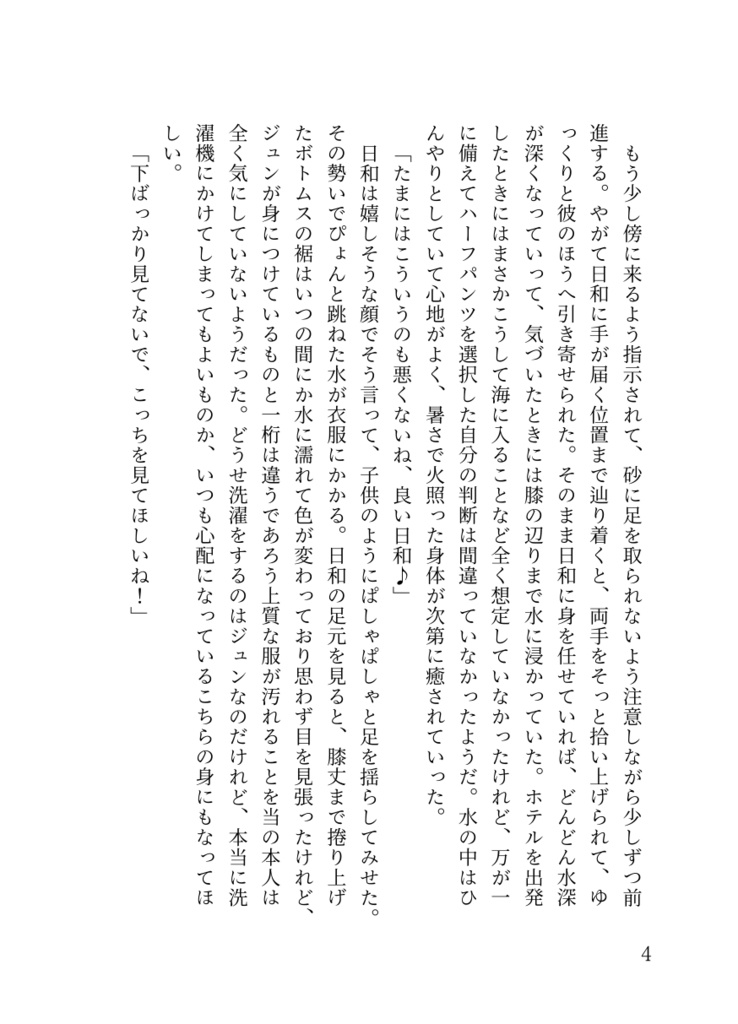 もう少し傍に来るよう指示されて、砂に足を取られないよう注意しながら少しずつ前
進する。やがて日和に手が届く位置まで辿り着くと、両手をそっと拾い上げられて、ゆ
っくりと彼のほうへ引き寄せられた。そのまま日和に身を任せていれば、どんどん水深
が深くなっていって、気づいたときには膝の辺りまで水に浸かっていた。ホテルを出発
したときにはまさかこうして海に入ることなど全く想定していなかったけれど、万が一
に備えてハーフパンツを選択した自分の判断は間違っていなかったようだ。水の中はひ
んやりとしていて心地がよく、暑さで火照った身体が次第に癒されていった。
「たまにはこういうのも悪くないね、良い日和♪」
　日和は嬉しそうな顔でそう言って、子供のようにぱしゃぱしゃと足を揺らしてみせた。
その勢いでぴょんと跳ねた水が衣服にかかる。日和の足元を見ると、膝丈まで捲り上げ
たボトムスの裾はいつの間にか水に濡れて色が変わっており思わず目を見張ったけれど、
ジュンが身につけているものと一桁は違うであろう上質な服が汚れることを当の本人は
全く気にしていないようだった。どうせ洗濯をするのはジュンなのだけれど、本当に洗
濯機にかけてしまってもよいものか、いつも心配になっているこちらの身にもなってほ
しい。
「下ばっかり見てないで、こっちを見てほしいね！」
4